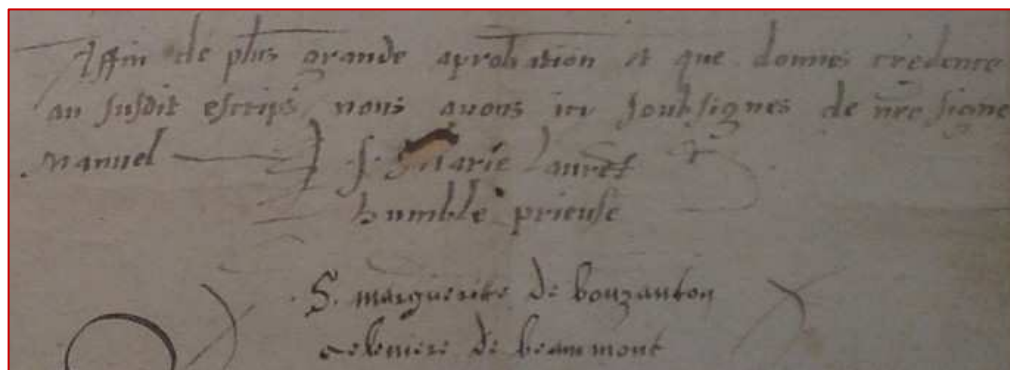 Affin de plus grande aprobation et que donnes credence
au susdit escrips nous auons icy soubsignes de nre signe
manuel S. Marie Lauret
humble prieuse
S. marguerite de bouzanton
celeriere de beaumont